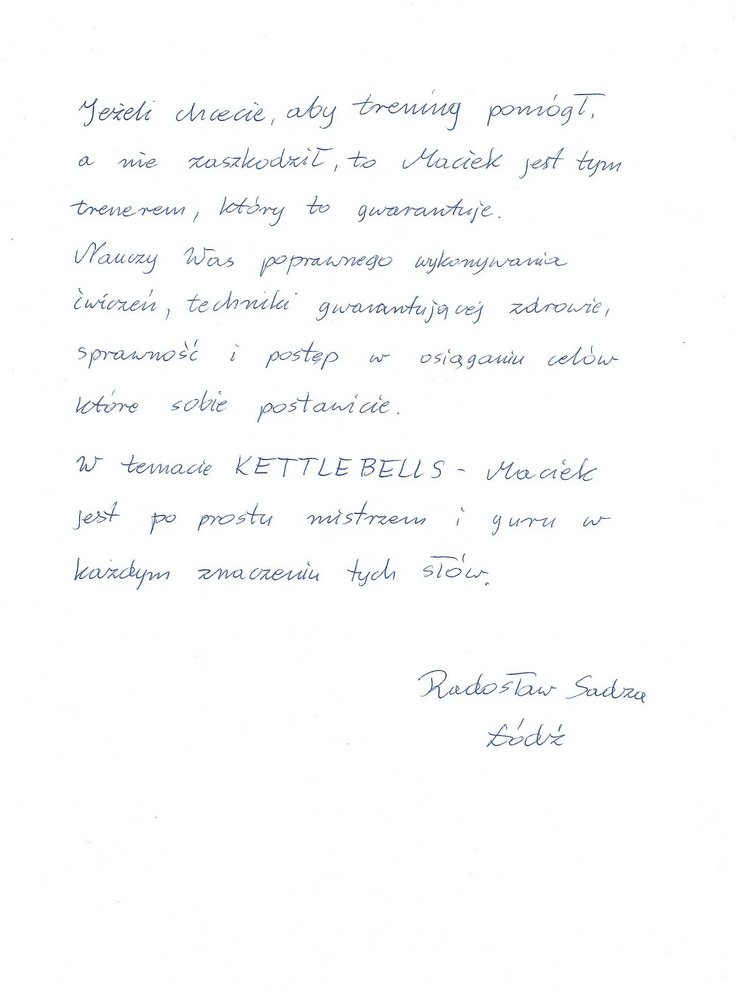 Jeżeli chcecie, aby trening pomógł,
a nie zaszkodził, to Maciek jest tym
trenerem, który to gwarantuje.
Nauczy Was poprawnego wykonywania
ćwiczeń, techniki gwarantującej zdrowie,
sprawność i postęp w osiąganiu celów
które sobie postawicie.
W temacie KETTLEBELLS - Maciek
jest po prostu mistrzem i guru w
każdym znaczeniu tych słów.
Radosław Sadza
Łódź